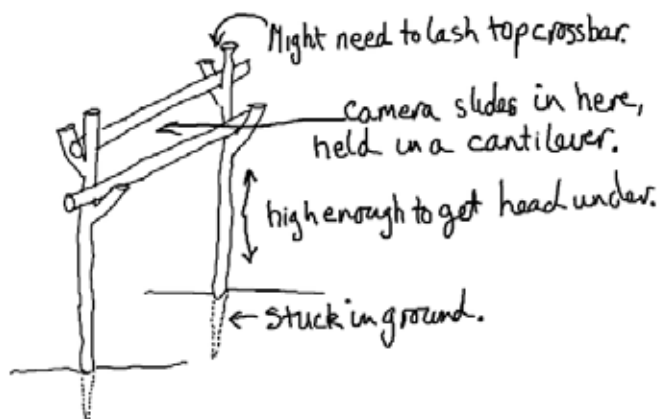 Might need to lash top crossbar.
camera slides in here,
held in a cantilever.
high enough to get head under.
stuck in ground.